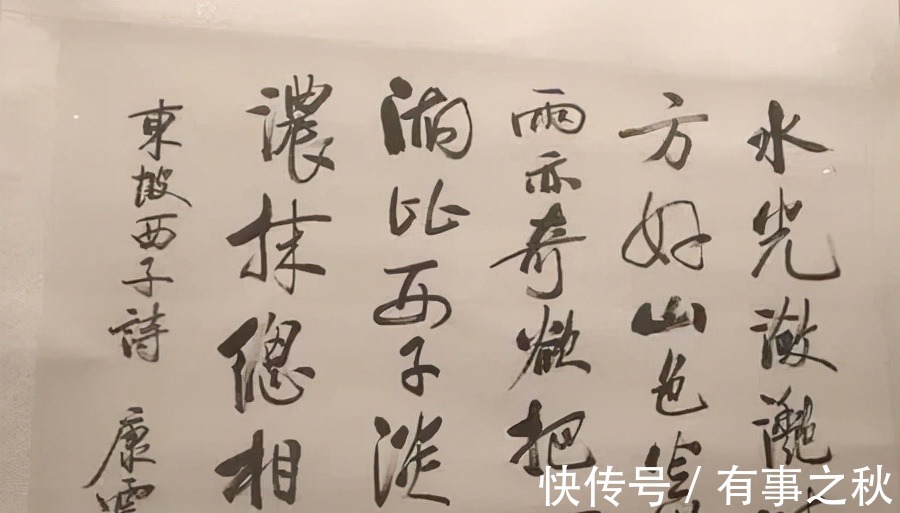 水光潋灧
方好山色
雨亦奇欲把
湖比西子淡
濃抹總相
東坡西子詩 康
快传号 / 有事之秋